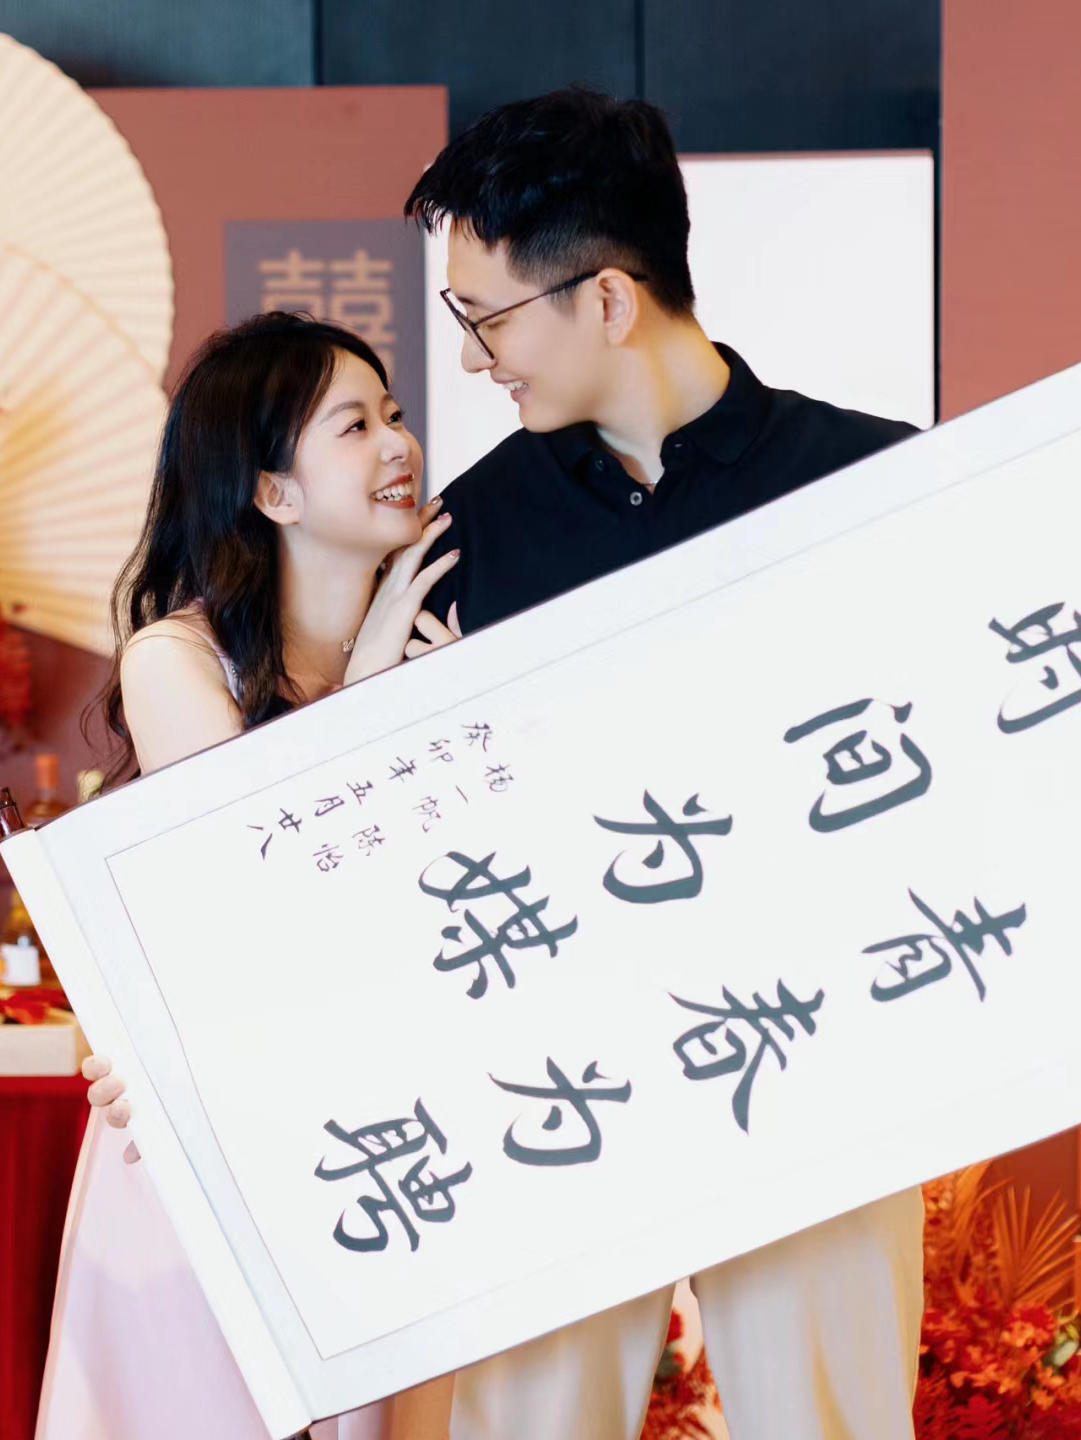 囍
青春为聘
时间为媒
杨一帆 陈怡
癸卯年五月廿八